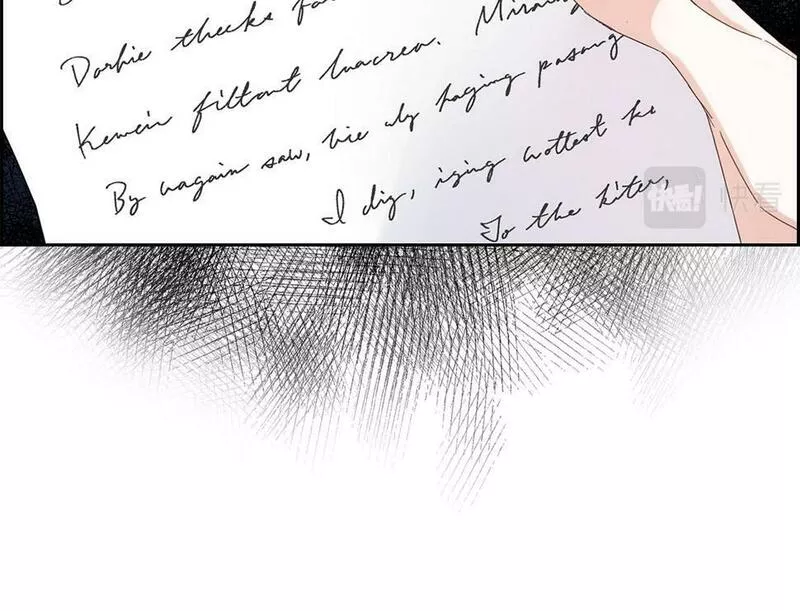 Dorhie thecks fa
Kemein filtont luacrea. Miraing
By wagain saw, hie aly haging pasong
I dig, iging wottest he
To the kiter,
快看! 快看